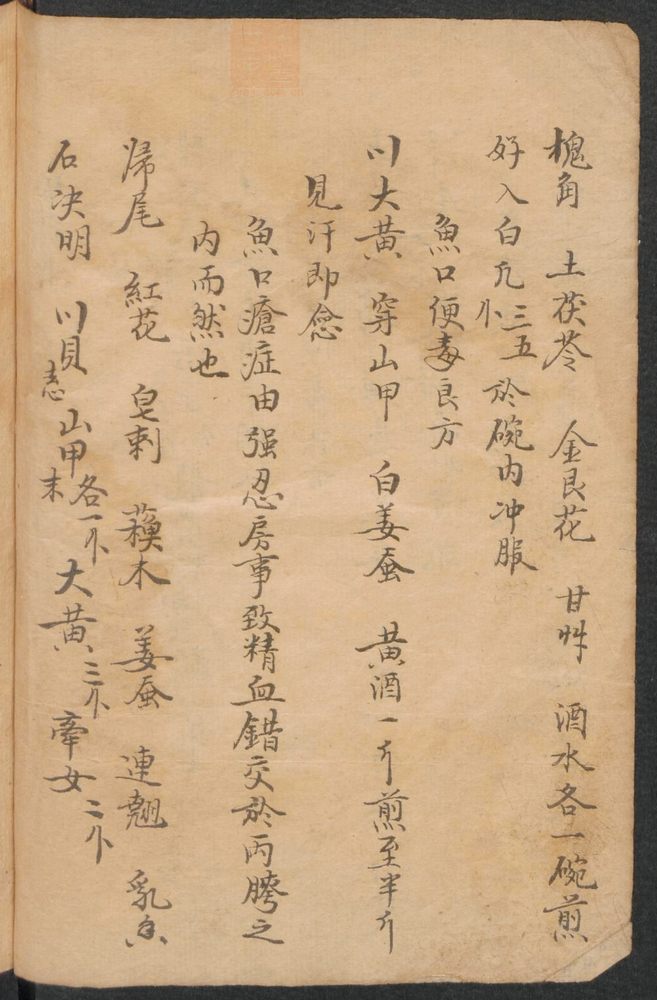 槐角 土茯苓 金艮花 甘艸 酒水各一碗煎
好入白凡三五卜於碗内冲服
魚口便毒良方
川大黄 穿山甲 白姜蚕 黄酒一斤煎至半斤
見汗即愈
魚口瘡症由强忍房事致精血錯交於両胯之
内而然也
帰尾 紅花 皂刺 蘓木 姜蚕 連翹 乳香
石决明 川貝 山甲末各一卜 大黄三卜 牽女二卜